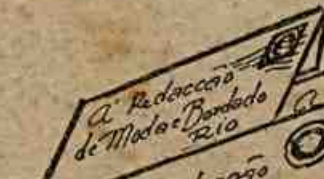 A' Redacção
de Moda e Bordado
RIO